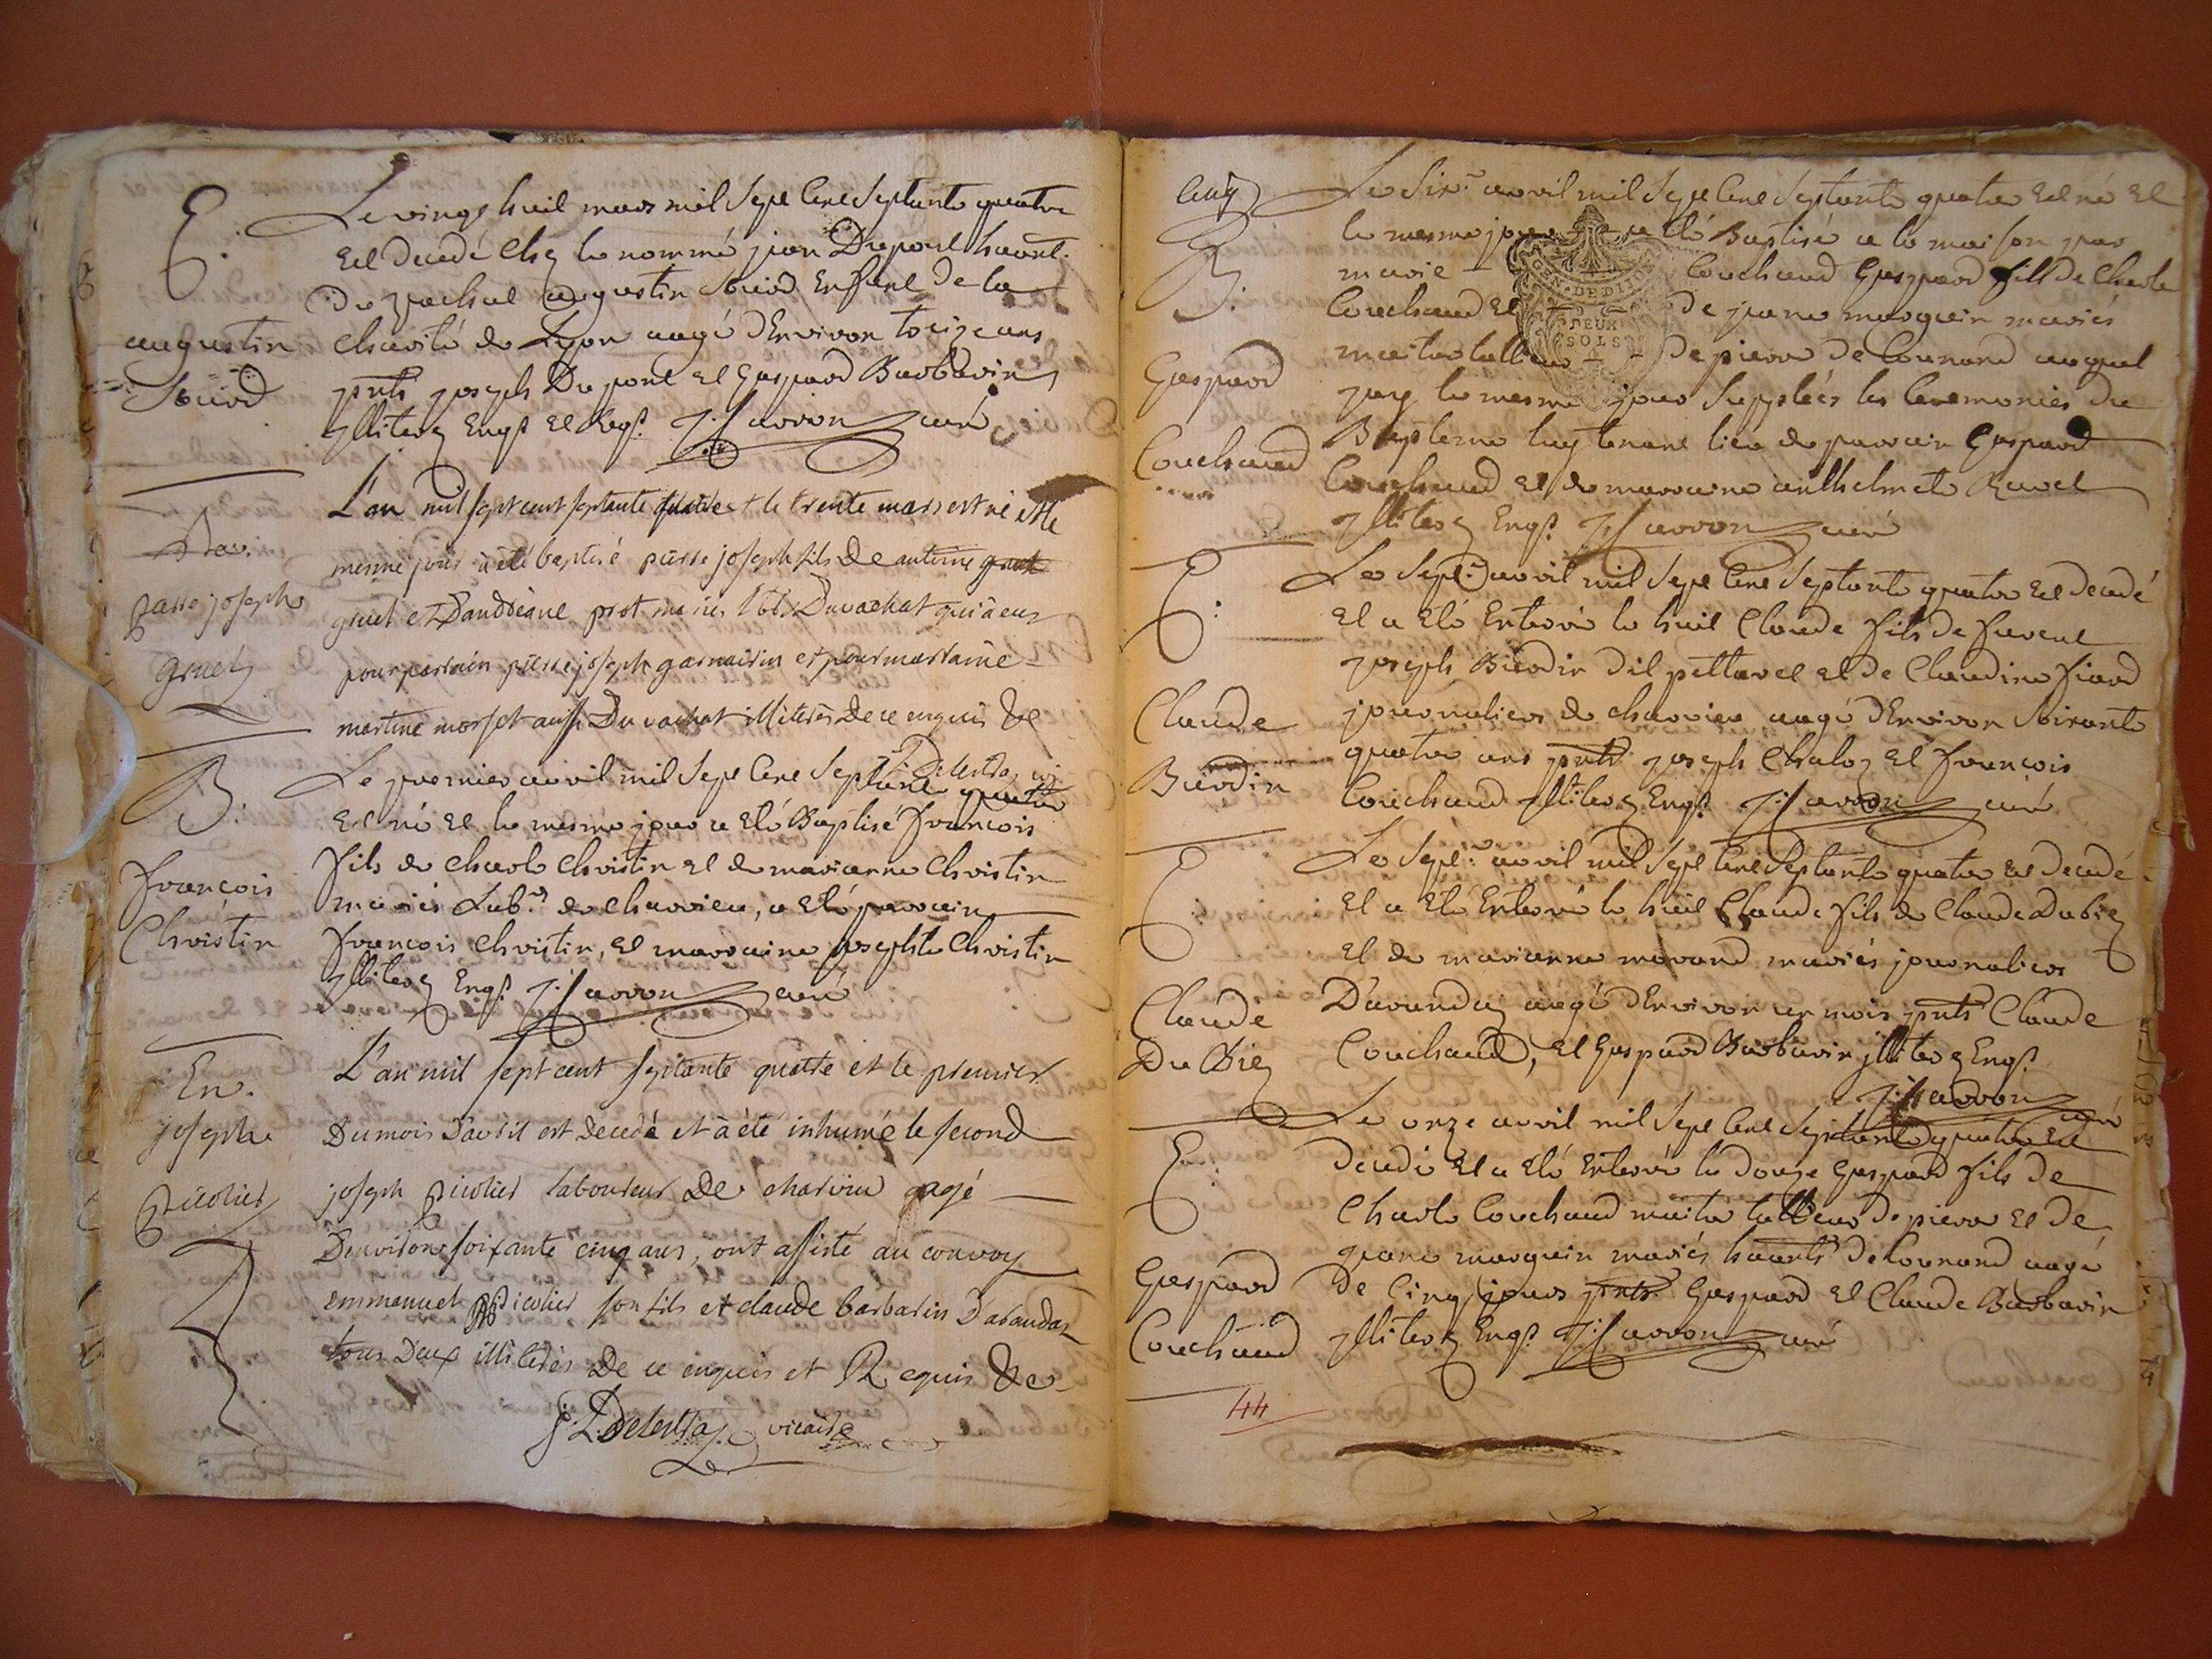 E:
augustin
Le vingt huit mars mil Sept Cent Septante quatre
Est Decedé Chez le nommé jean Dupont habit.
du vachat augustin Enfant De la
charité de Lyon aagé d'Environ treize ans
pnts joseph Dupont Et Gaspard Barbarin
jlliterez Enqs. Et Reqs. curé
Bap.
pierre joseph
gruet
L'an mil sept cent septante quatre et le trente mars est né et le
mesme jour à été baptisé pierre joseph fils De antoine gruet
gruet et Dauddeane mariés Duvachat qui a eu
pour parrain pierre joseph garnairin et pour marraine
martine morset aussi Du vachat illiterés De ce enquis De
J: Delestra vic
B:
françois
Christin
Le premier avril mil Sept Cent Septante quatre
Est né Et le mesme jour a Eté Baptisé françois
fils de charle Christin Et de marianne Christin
mariés Labrs. de charvieu, a Eté parrain
françois Christin, Et marraine josephte Christin
jlliterez Enqs. curé
En.
joseph
picolier
L'an mil sept cent septante quatre et le premier
Du mois D'avril est Decedé et à été inhumé le second
joseph picolier laboureur De charvieu aagé
D'environ soixante cinq ans, ont assisté au convoy
emmanuel picolier son fils et claude barbarin D'arandas
tous Deux illiterés De ce enquis et Requis De
J: L: Delestra vicaire
B:
Gaspard
Couchaud
Le Six.e avril mil Sept Cent Septante quatre Est né Et
le mesme jour a Eté Baptisé a la maison par
marie Couchaud Gaspard fils De Charle
Couchaud Et De jeane marquin mariés
maitre tallieur De pierre De Counand auquel
jay le mesme jour Supplées les Ceremonies du
Baptême luy tenant lieu de parrain Gaspard
Couchaud Et de marraine anthelmete Ravet
jlliterez Enqs. curé
GEN. DE DIJON
DEUX
SOLS
E:
Claude
Burdin
Le Sept.e avril mil Sept Cent Septante quatre Est Decedé
Et a Eté Enterré le huit Claude fils de
joseph Burdin dit pettavel Et De Claudine fiard
journaliers de charvieu aagé d'Environ Soixante
quatre ans pnts. joseph Chaloz Et françois
Couchaud jlliterez Enqs. curé
E:
Claude
Du Biez
Le Sept.e avril mil Sept Cent Septante quatre Est Decedé
Et a Eté Enterré le huit Claude fils de Claude Dubiez
Et de marianne morand mariés journaliers
D'arandaz aagé d'Environ un mois pnts Claude
Couchaud, Et Gaspard Barbarin jlliterez Enqs.
curé
E:
Gaspard
Couchaud
Le onze avril mil Sept Cent Septante quatre Est
Decedé Et a Eté Enterré le douze Gaspard fils De
Charle Couchaud maitre tallieur De pierre Et De
jeane marquin mariés habitants De Counand aagé
De Cinq jours pnts. Gaspard Et Claude Barbarin
jlliterez Enqs. curé
44